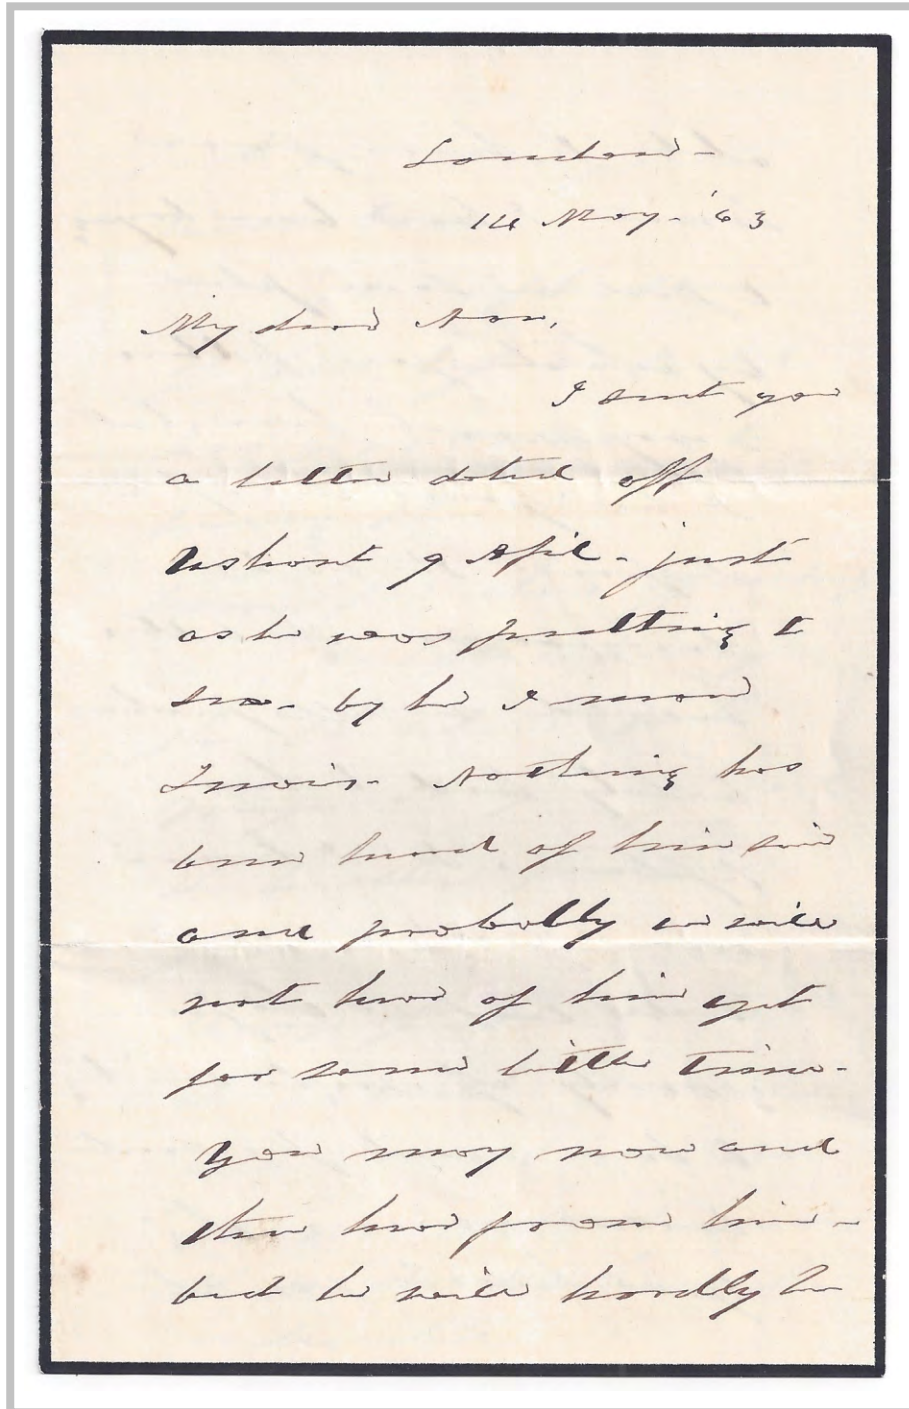 London -
14 May - '63
My dear Ann,
I sent you
a letter dated off
Ushant 9 April - just
as he was putting to
sea - by he I mean
Lewis - Nothing has
been heard of him since
and probably we will
not hear of him yet
for some little time -
You may now and
then hear from him -
but he will hardly be